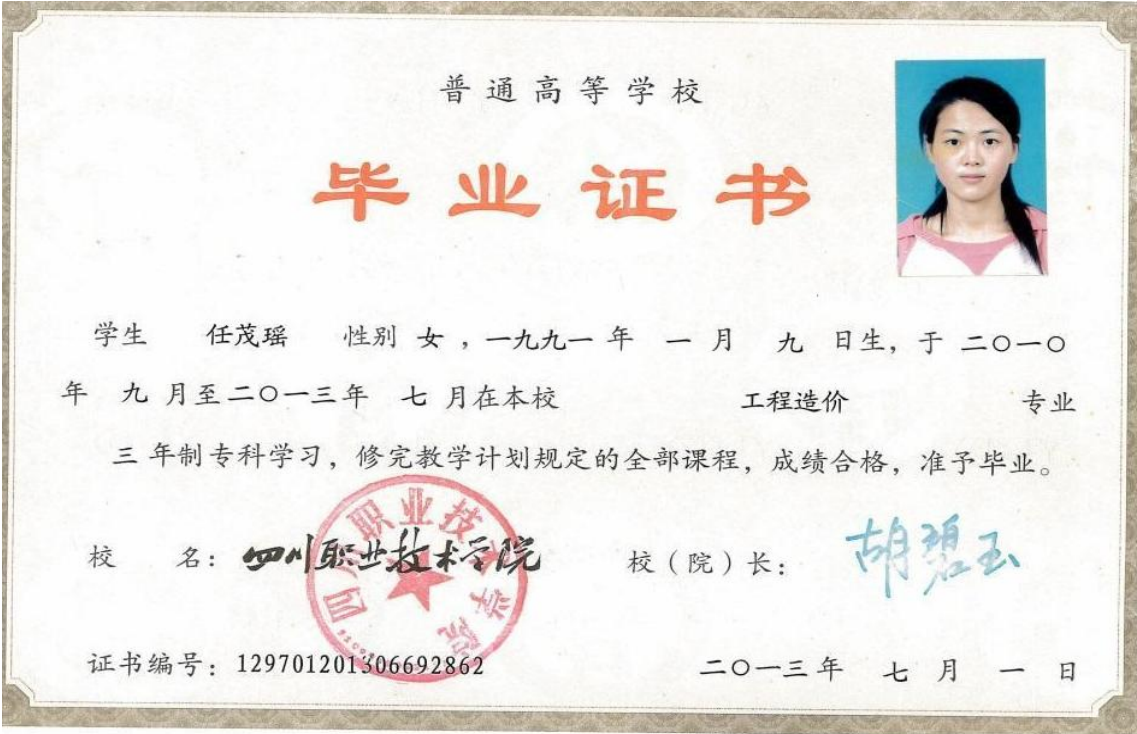 普通高等学校
毕业证书
学生 任茂瑶 性别 女 ，一九九一 年 一 月 九 日生，于 二〇一〇
年 九 月至二〇一三年 七 月在本校 工程造价 专业
三 年制专科学习，修完教学计划规定的全部课程，成绩合格，准予毕业。
四川职业技术学院
校 名：四川职业技术学院 校（院）长：胡碧玉
证书编号：129701201306692862 二〇一三年 七 月 一 日